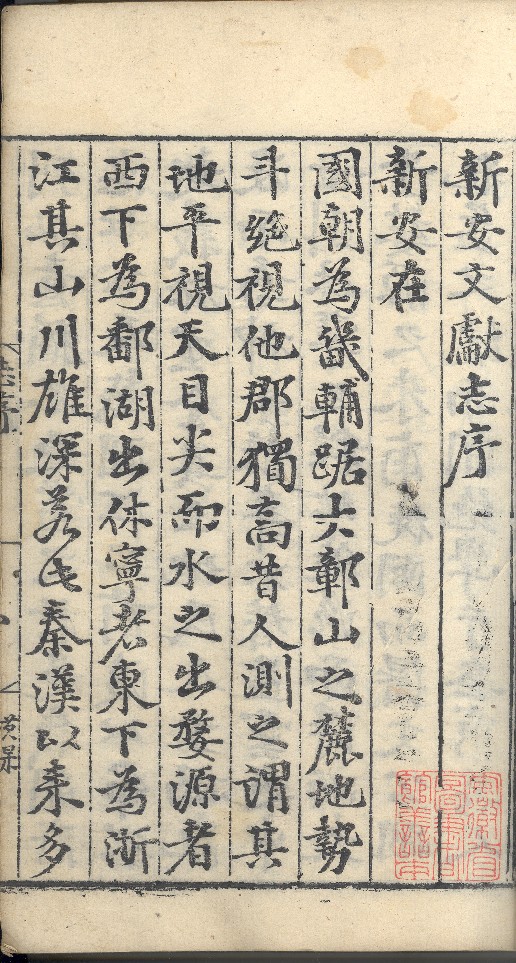 新安文獻志序
新安在
國朝為畿輔踞大鄣山之麓地勢
斗絶視他郡獨高昔人測之謂其
地平視天目尖而水之出婺源者
西下為鄱湖出休寧者東下為浙
江其山川雄深若此秦漢以來多
安徽省
圖書
館藏書
志序
黃杲